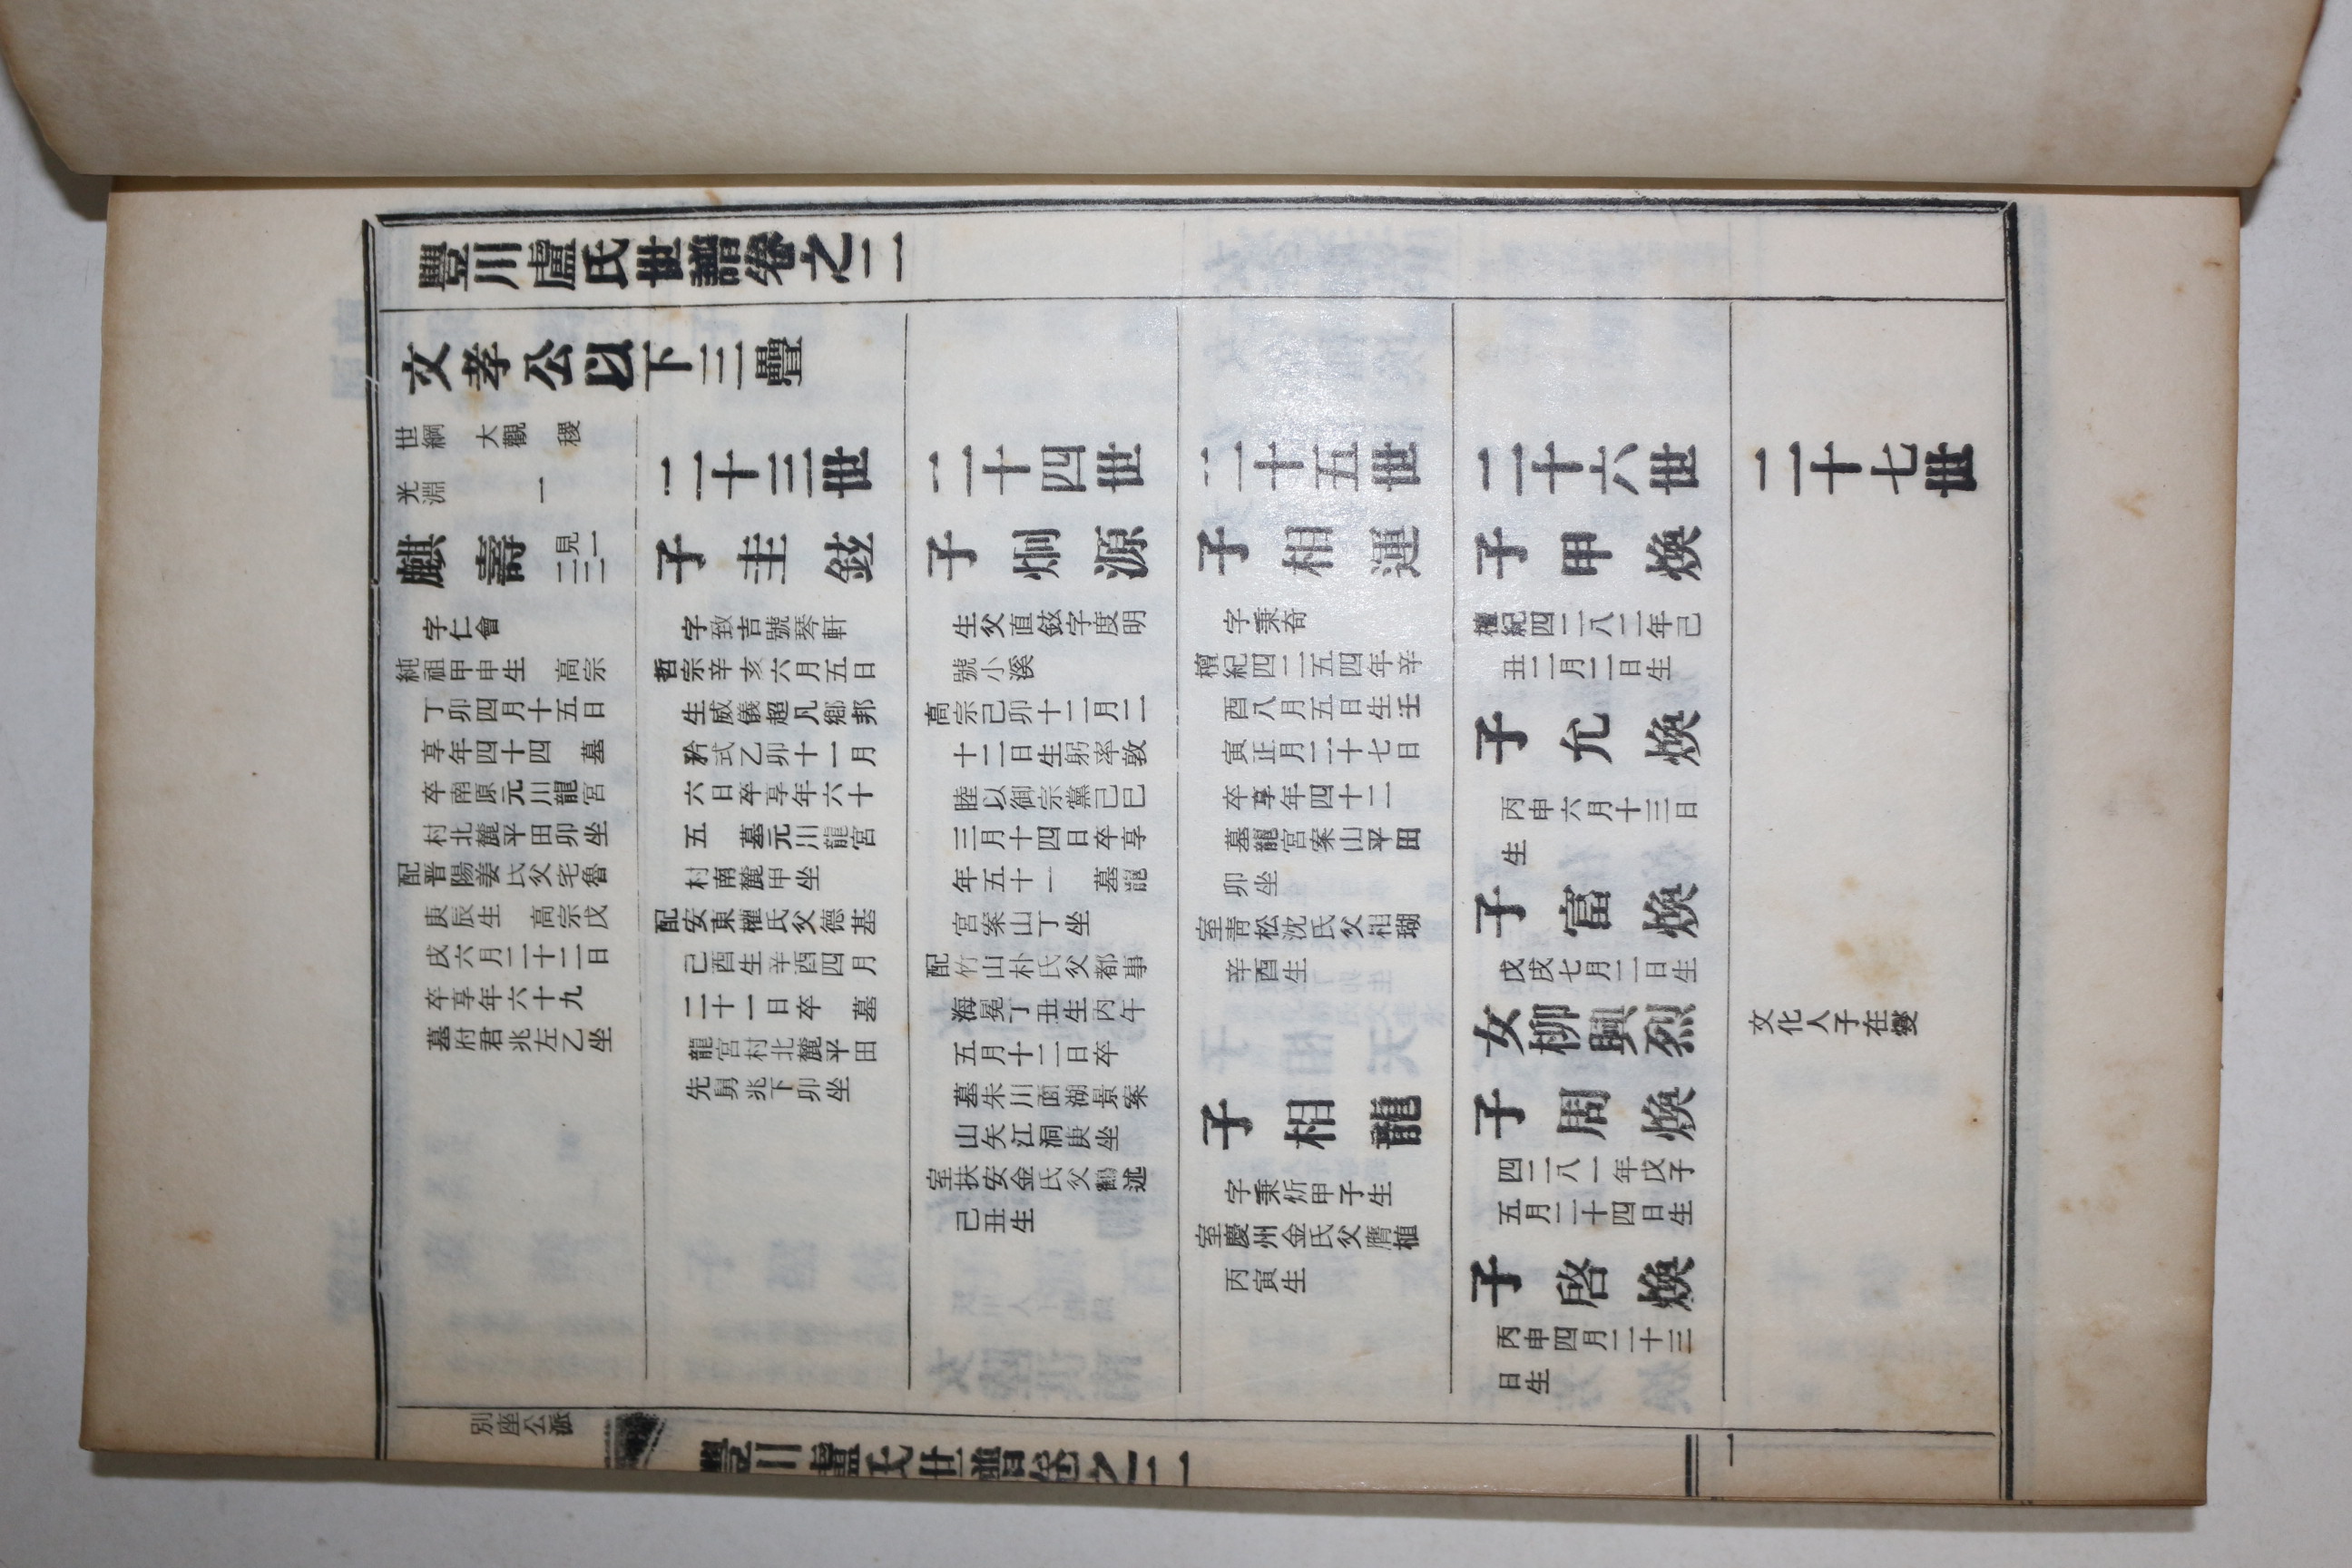 豐川盧氏世譜卷之二
文孝公以下三疊
世綱 大觀 稷
光淵 一
麒壽 見一二二
字仁會
純祖甲申生 高宗
丁卯四月十五日
享年四十四 墓
卒南原元川龍宮
村北麓平田卯坐
配晋陽姜氏父宅魯
庚辰生 高宗戊
戌六月二十二日
卒享年六十九
墓府君兆左乙坐
二十三世
子圭鉉
字致吉號琴軒
哲宗辛亥六月五日
生威儀超凡鄕邦
矜式乙卯十一月
六日卒享年六十
五 墓元川龍宮
村南麓甲坐
配安東權氏父德基
己酉生辛酉四月
二十一日卒 墓
龍宮村北麓平田
先舅兆下卯坐
二十四世
子炯源
生父直鉉字度明
號小溪
高宗己卯十二月二
十二日生躬率敦
睦以御宗黨己巳
三月十四日卒享
年五十一 墓龍
宮案山丁坐
配竹山朴氏父都事
海冕丁丑生丙午
五月十二日卒
墓朱川面湖景案
山矢江洞庚坐
室扶安金氏父鶴述
己丑生
二十五世
子相運
字秉奇
檀紀四二五四年辛
酉八月五日生壬
寅正月二十七日
卒享年四十二
墓龍宮案山平田
卯坐
室靑松沈氏父相瑚
辛酉生
子相龍
字秉炘甲子生
室慶州金氏父膺植
丙寅生
二十六世
子甲煥
檀紀四二八二年己
丑二月二日生
子允煥
丙申六月十三日
生
子富煥
戊戌七月二日生
女柳興烈
子周煥
四二八一年戊子
五月二十四日生
子啓煥
丙申四月二十三
日生
二十七世
文化人子在燮
別座公派
豐川盧氏世譜卷之二
一